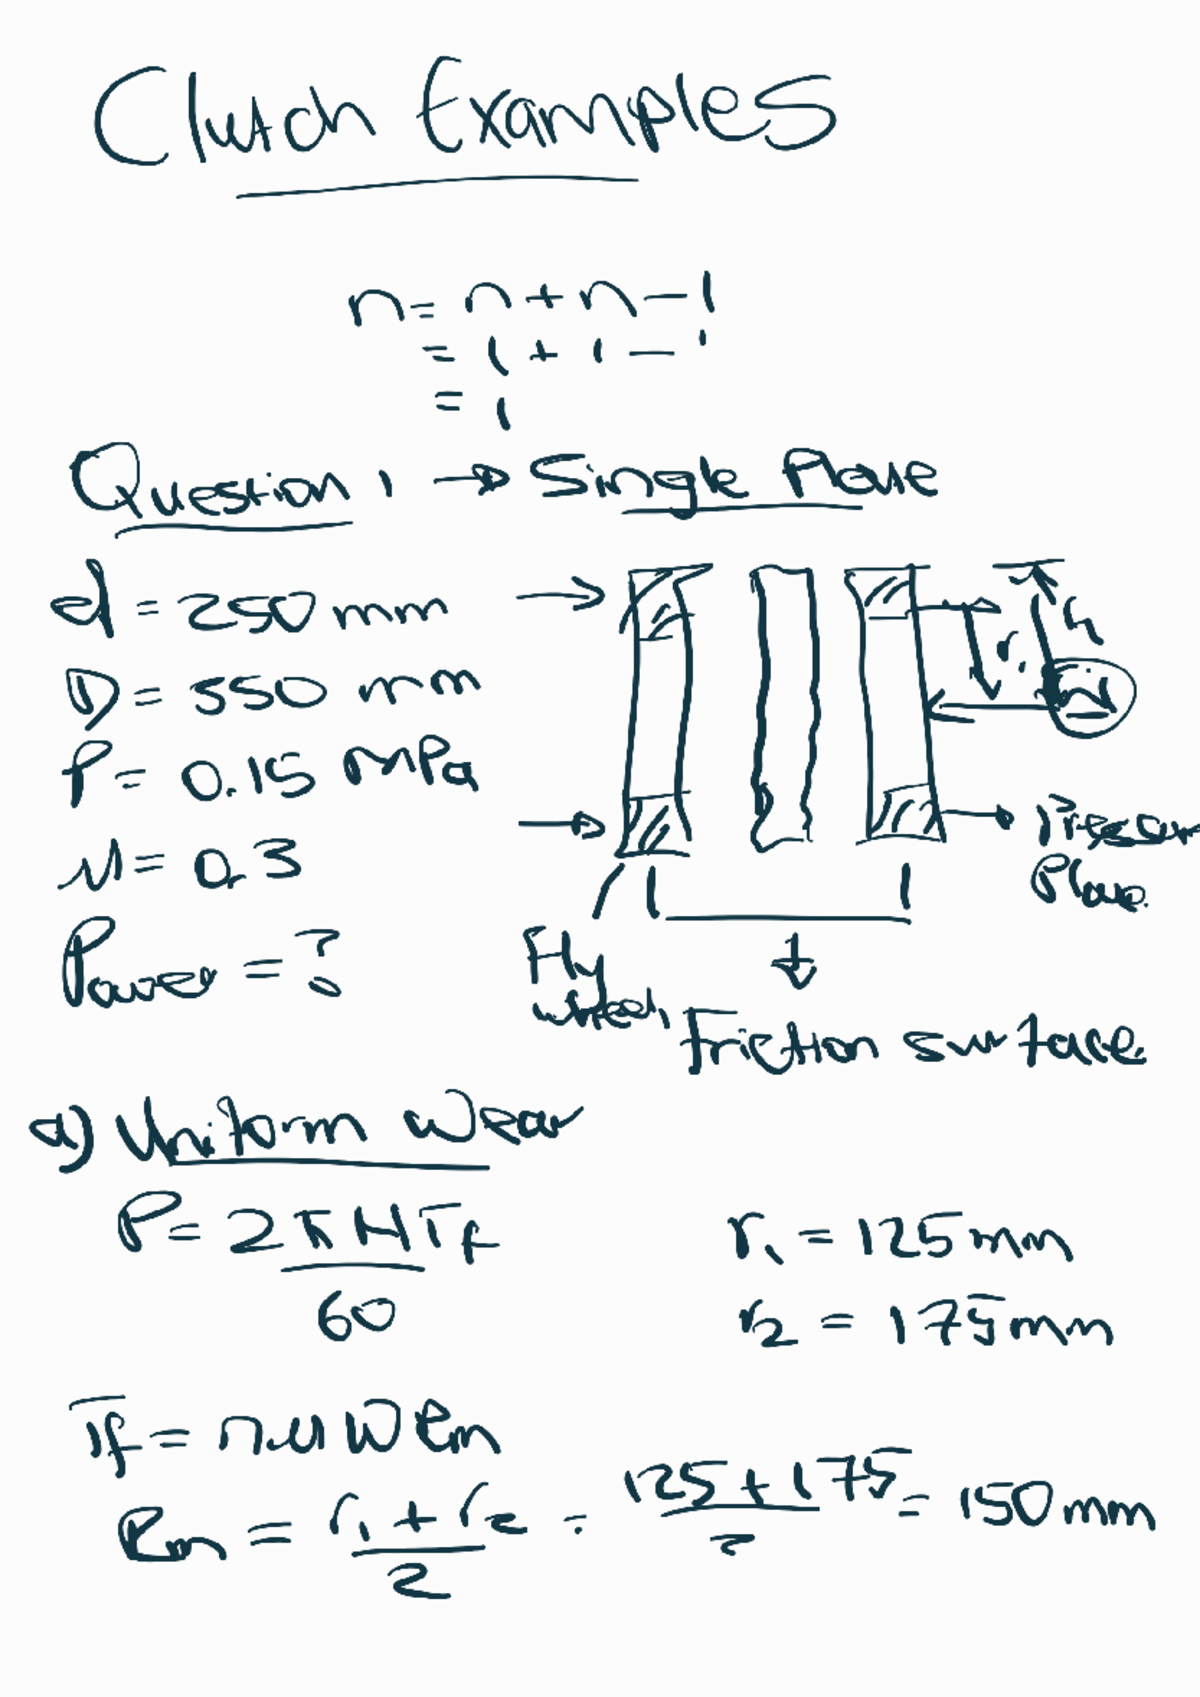 Clutch Examples
n = n + n - 1
= 1 + 1 - 1
= 1
Question 1 → Single Plate
d = 250 mm
D = 550 mm
P = 0.15 mPa
μ = 0.3
Power = ?
r1
W
Pressure
Plate
Fly
wheel
Friction surface
a) Uniform wear
P = 2πNTf
60
r1 = 125mm
r2 = 175mm
Tf = n.μ W Rm
Rm = r1 + r2 = 125 + 175 = 150mm
2 2